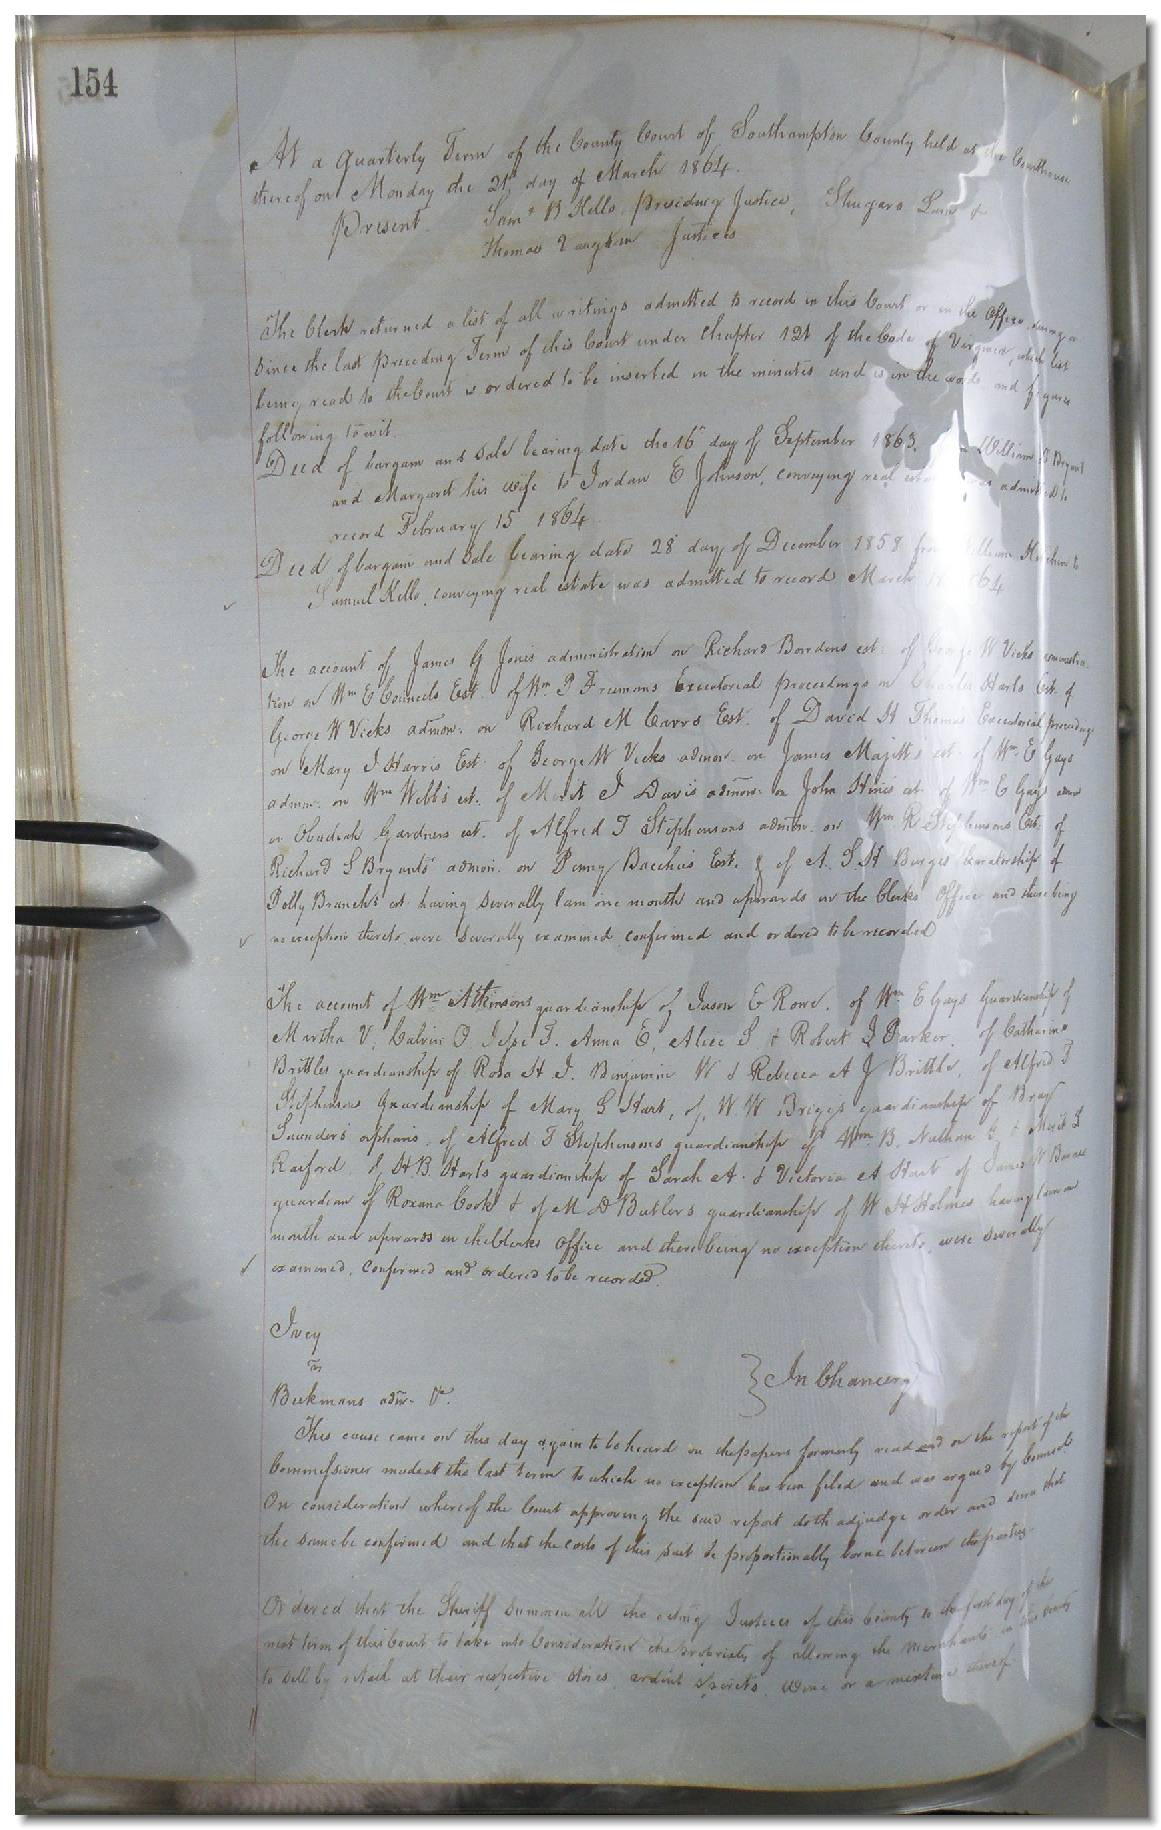 154
At a Quarterly Term of the County Court of Southampton County held at the Courthouse
thereof on Monday the 21st day of March 1864.
Present. Saml B Kello, presiding Justice,
Thomas Vaughan Justices
The Clerk returned a list of all writings admitted to record in this Court or in the Office
since the last preceding Term of this Court under Chapter 121 of the Code of Virginia, which list
being read to the Court is ordered to be inserted in the minutes and is in the words and figures
following to wit.
Deed of bargain and sale bearing date the 16 day of September 1863. William
and Margaret his wife to Jordan E Johnson, conveying real was admitted to
record February 15 1864
Deed of bargain and sale bearing date 28 day of December 1858 from William to
Samuel Kello, conveying real estate was admitted to record March 1864
The account of James G Jones administration on Richard Bowdens est: of George W Vicks administra-
tion on Wm E Councels Est. of Wm P Freemans Executorial proceedings on Charles Harts Est. of
George W Vicks admon. on Richard M Carrs Est. of David H Thomas Executorial proceedings
on Mary J Harris Est. of George W Vicks admon. on James Majetts est. of Wm E Gays
admon. on Wm Webb's est. of Merit J Davis admon. on John Hines est. of Wm E Gays
on Obadiah Gardners est. of Alfred T Stephensons admon. on Wm R Stephensons Est. of
Richard S Bryants admon. on Penny Bacchus Est. & of A. S. H Burges Curatorship of
Polly Branch's est having severally lain one month and upwards in the Clerks Office and there being
no exception thereto, were severally examined confirmed and ordered to be recorded
The account of Wm Atkinsons guardianship of Jason E Rowe. of Wm E Gays Guardianship of
Martha V, Calvin O, Jesse T. Anna E, Alice S. & Robert J Parker. of Catharine
Brittles guardianship of Rosa H J. Benjamin W & Rebecca A J Brittle, of Alfred T
Stephenson Guardianship of Mary G Hart, of W. W Briggs guardianship of Bray
Saunders orphans, of Alfred T Stephensons guardianship of Wm B, Nathan & Merit S
Raiford, of H. B. Harts guardianship of Sarah A. & Victoria A Hart of James W
guardian of Roxana Cook & of M D Butlers guardianship of W H Holmes having lain a
month and upwards in the Clerks Office and there being no exception thereto, were severally
examined, confirmed and ordered to be recorded.
Ivey
vs
Beekmans adm. &c. } In Chancery
This cause came on this day again to be heard on the papers formerly read and on the report of the
Commissioner made at the last term to which no exception has been filed and was argued by Counsel
On consideration whereof the Court approving the said report doth adjudge order and decree that
the same be confirmed and that the costs of this suit be proportionably borne between the parties.
Ordered that the Sheriff summon all the acting Justices of this County to the first day of the
next term of this Court to take into consideration the propriety of allowing the merchants in this County
to sell by retail at their respective stores, ardent spirits, wine or a mixture thereof